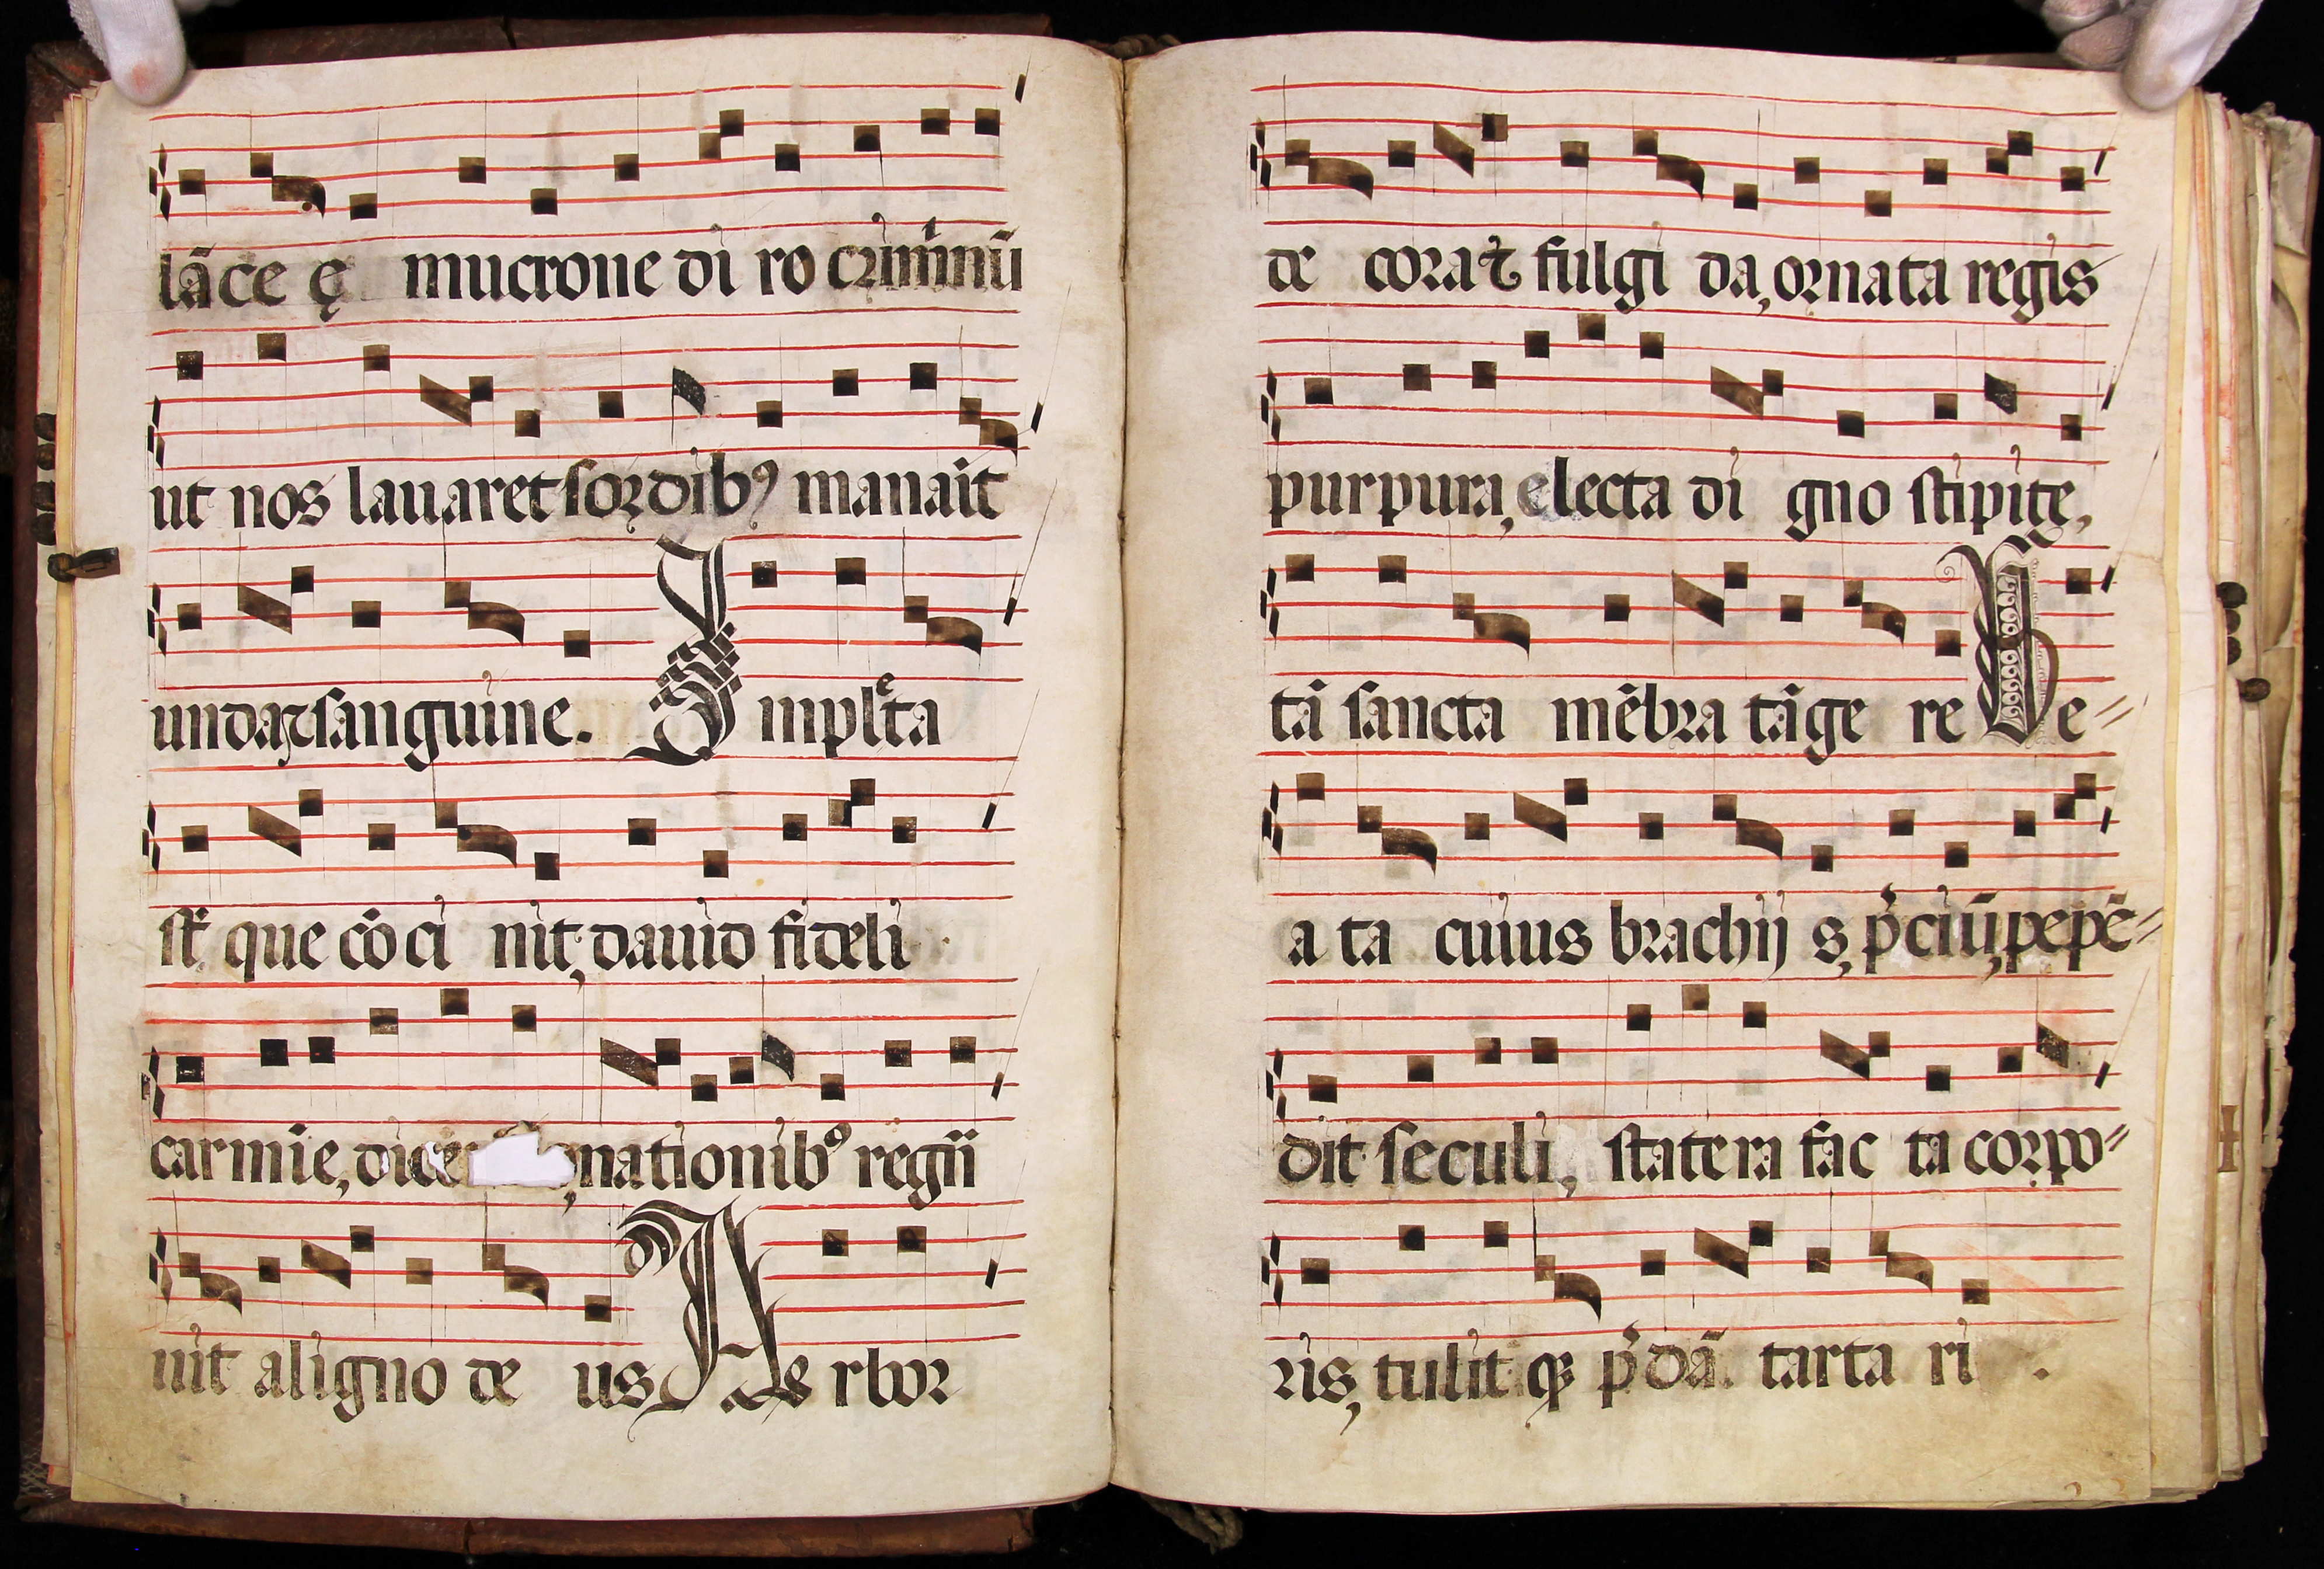 lāce ę mucrone di ro crimīnū
ut nos lauaret sordibꝰ manait
unda⁊sanguine. Implēta
st̄ que cōci nit, dauid fideli
carmīe, dice , nationibꝰ regīī
uit aligno de us As rbor
de cora⁊ fulgi da, ornata regis
purpura, electa di gno stipite,
tā sancta mēbra tāge re Be⸗
a ta cuius brachij s, p̄ciū, pepē⸗
dit seculi, statera fac ta corpo⸗
ris, tulit qꝫ p̄dā. tarta ri .